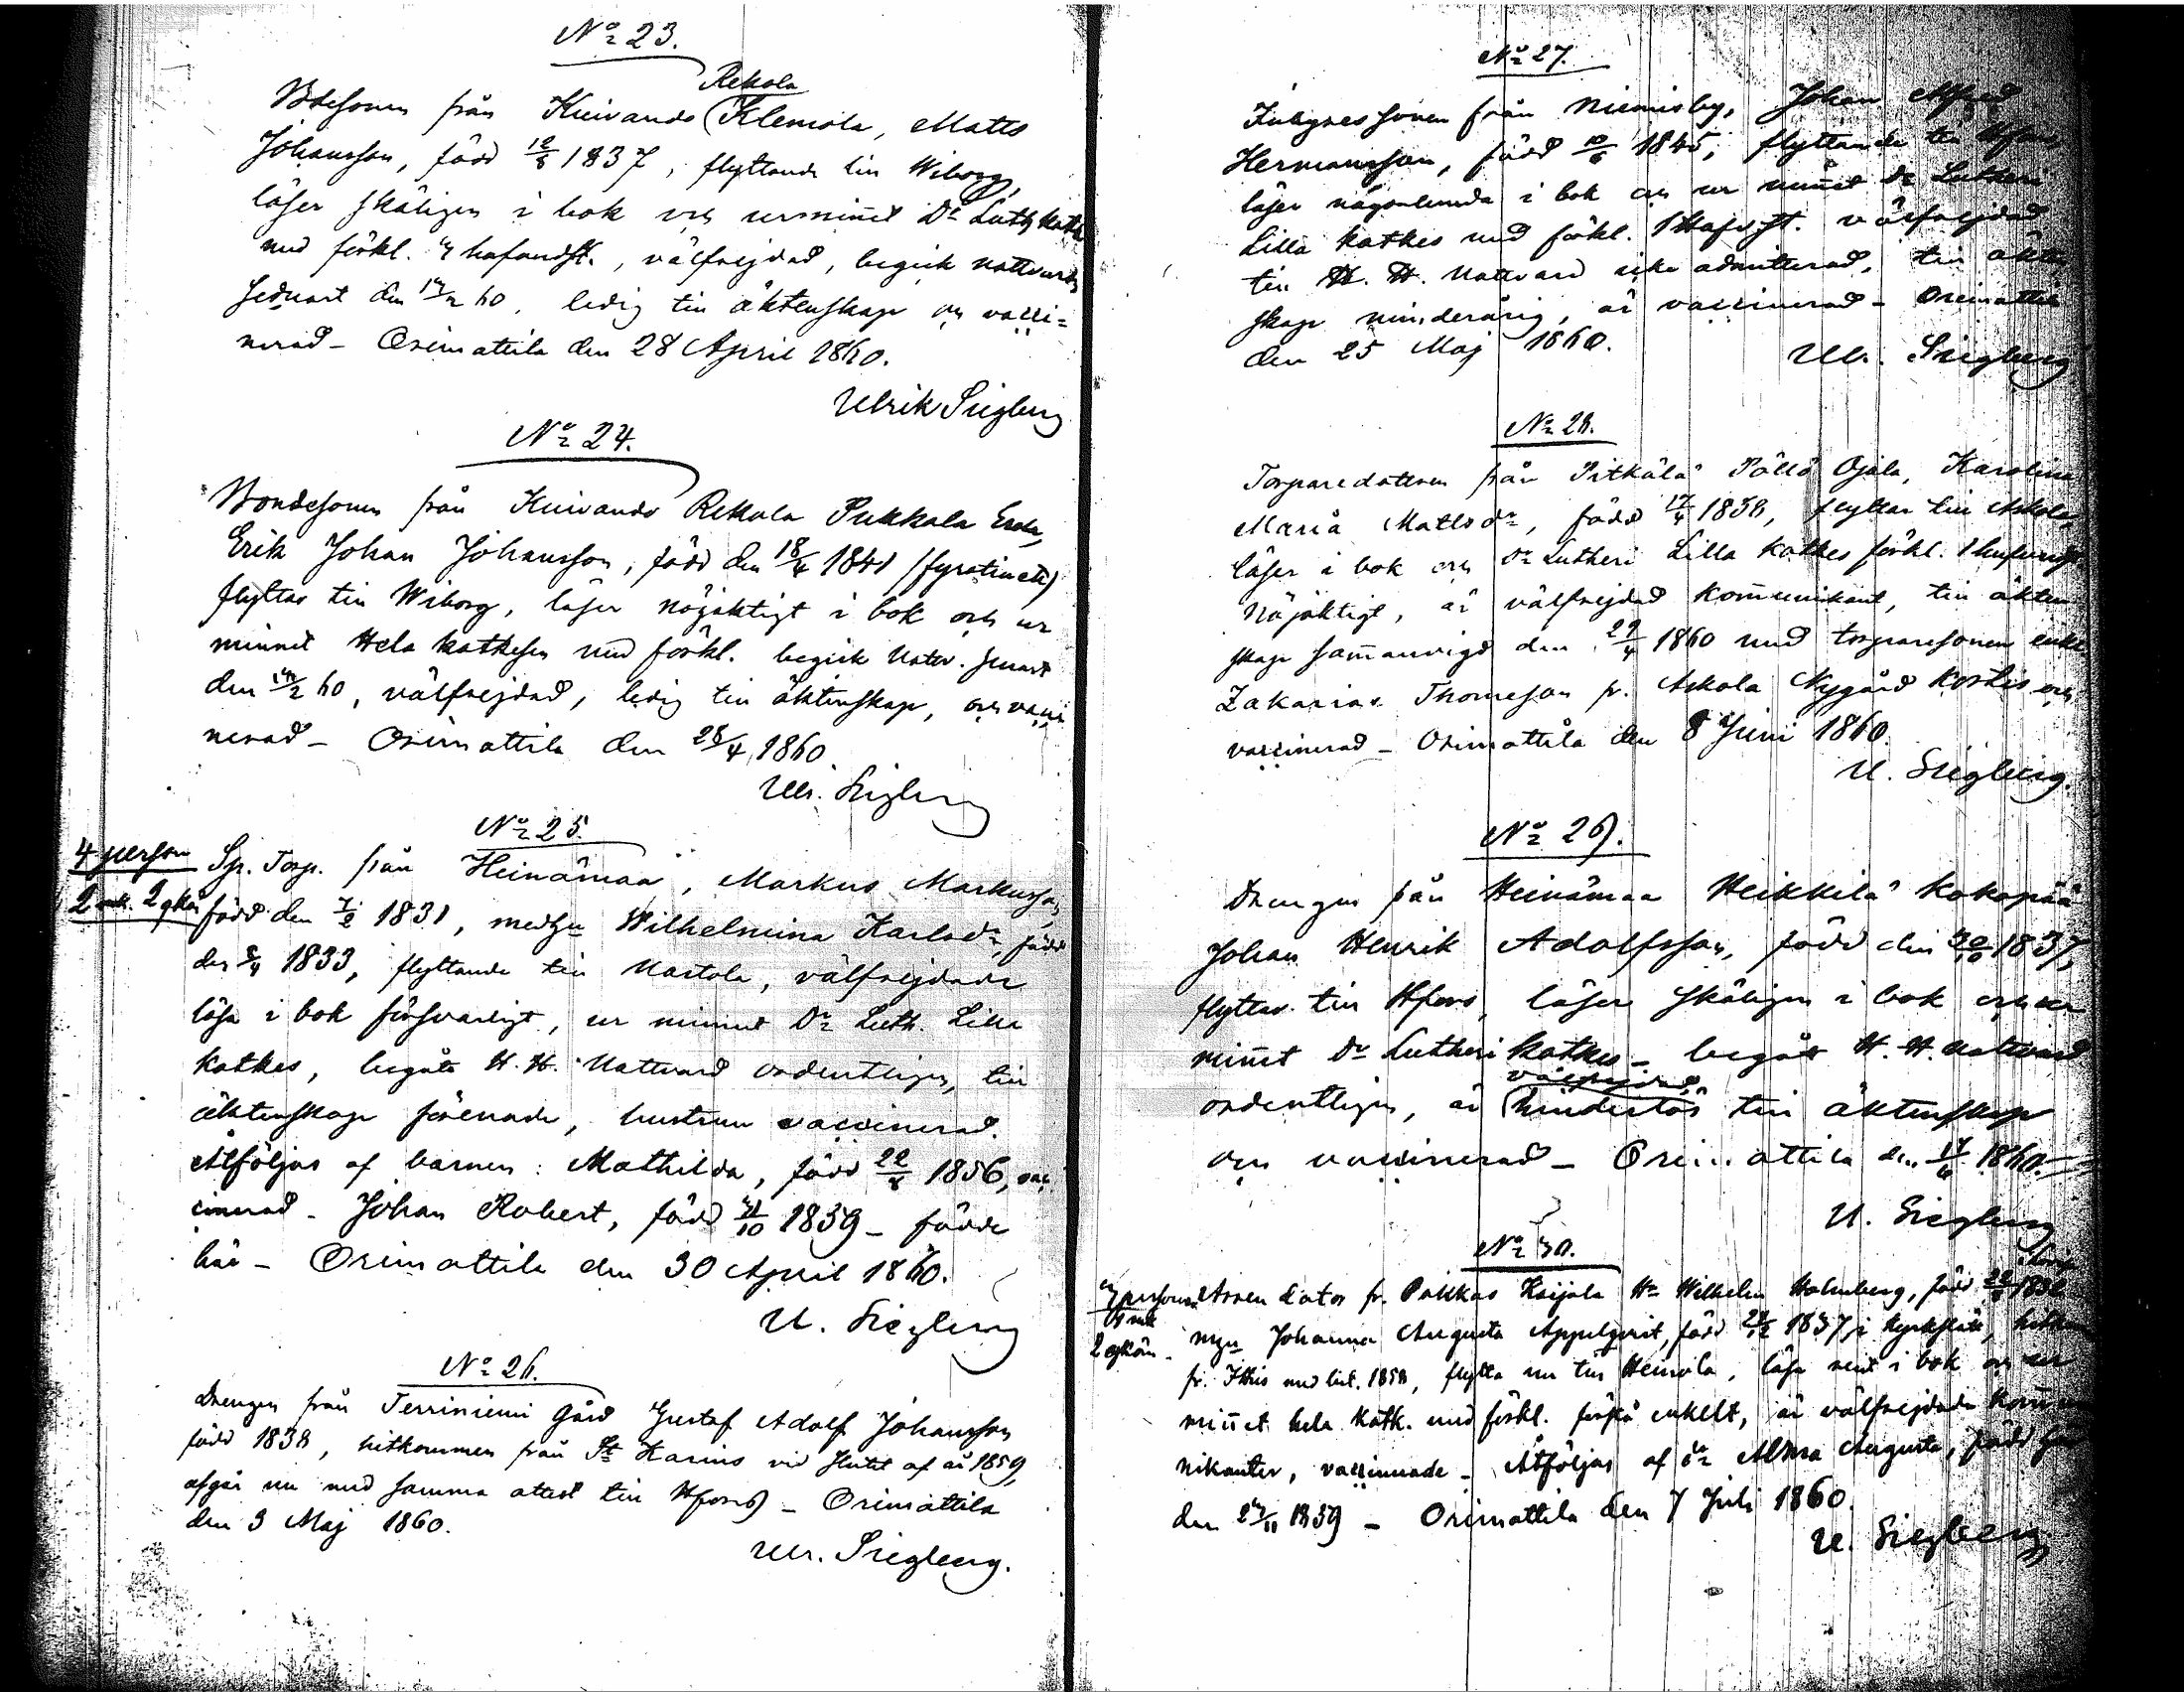 No 23.
Rekola
Bdesonen från Kuivando Klemola, Matts
Johansson, född 12/8 1837, flyttande till Wiborg,
läser skäligen i bok och ur minnet Dr Luth kat
med förkl. hufvudst., välfrejdad, begick nattvarden
senast den 60, ledig till äktenskap och vacci=
nerad – Orimattila den 28 April 1860.
Ulrik Siegberg
No 24.
Bondesonen från Kuivando Rekola Pukkala
Erik Johan Johansson, född den 18/4 1841 (fyrationett)
flyttar till Wiborg, läser nöjaktigt i bok och ur
minnet Hela kathesen med förkl. begick Nattv. senast
den 60, välfrejdad, ledig till äktenskap, och vacci
nerad – Orimattila den 28/4 1860.
Ulr. Siegberg
No 25.
4 person
2 mk. 2 qkön
Sp. Torp. från Heinämaa, Markus Markusson,
född den 7/2 1831, med hu Wilhelmina Karlsdr, född
den 1833, flyttande till Nastola, välfrejdade
läsa i bok försvarligt, ur minnet Dr Luth. Lilla
kathes, begått H. H. Nattvard ordentligen, till
äktenskap förenade, hustrun vaccinerad.
Åtföljas af barnen: Mathilda, född 22/8 1856, vac
cinerad – Johan Robert, född 1859 – födde
här – Orimattila den 30 April 1860.
U. Siegberg
No 26.
Drengen från Terriniemi Gård Gustaf Adolf Johansson
född 1838, hitkommen från St Karins vid slutet af år 1859,
afgår nu med samma attest till Hfors – Orimattila
den 3 Maj 1860.
Ulr. Siegberg.
No 27.
Inhysessonen från Niemisby, Johan Alfred
Hermansson, född 1845, flyttande till Hfors,
läser någorlunda i bok och ur minnet Dr Lutheri
Lilla kathes med förkl. 1 Hufvst. välfrejdad
till H. H. Nattvard icke admitterad, till äkten
skap minderårig, är vaccinerad – Orimattila
den 25 Maj 1860.
Ulr. Siegberg
No 28.
Torparedottren från Pitkälä Pöllö Ojala, Karolina
Maria Mattsdr, född 17/4 1838, flyttar till Askola,
läser i bok och Dr Lutheri Lilla kathes förkl. 1 hufvudst
nöjaktigt, är välfrejdad kommunikant, till äkten
skap sammanvigd den 29/4 1860 med torparesonen
Zakarias Thomesson fr. Askola Nygård Kostis och
vaccinerad – Orimattila den 8 Juni 1860.
U. Siegberg.
No 29.
Drengen från Heinämaa Heikkilä Kokapää
Johan Henrik Adolfsson, född den 1837,
flyttar till Hfors, läser skäligen i bok och ur
minnet Dr Lutheri kathes – begått H. H. nattvard
välfrejdad,
ordentligen, är hinderlös till äktenskap
och vaccinerad – Orimattila den 17/6 1860.
U. Siegberg
No 30.
3 personer
1 mk
2 qkön.
Arrendator fr. Pakkas Kaijala Hr Wilhelm Holmberg, född
Johanna Augusta Appelqvist, född 1837 i Kyrkslätt,
fr. Ithis med bet. 1858, flytta nu till Heinola, läsa rent i bok och ur
minnet hela kath. med förkl. förstå enkelt, är välfrejdade kommu
nikanter, vaccinerade – Åtföljas af dr Alma Augusta, född
den 1859 – Orimattila den 7 Juli 1860.
U. Siegberg